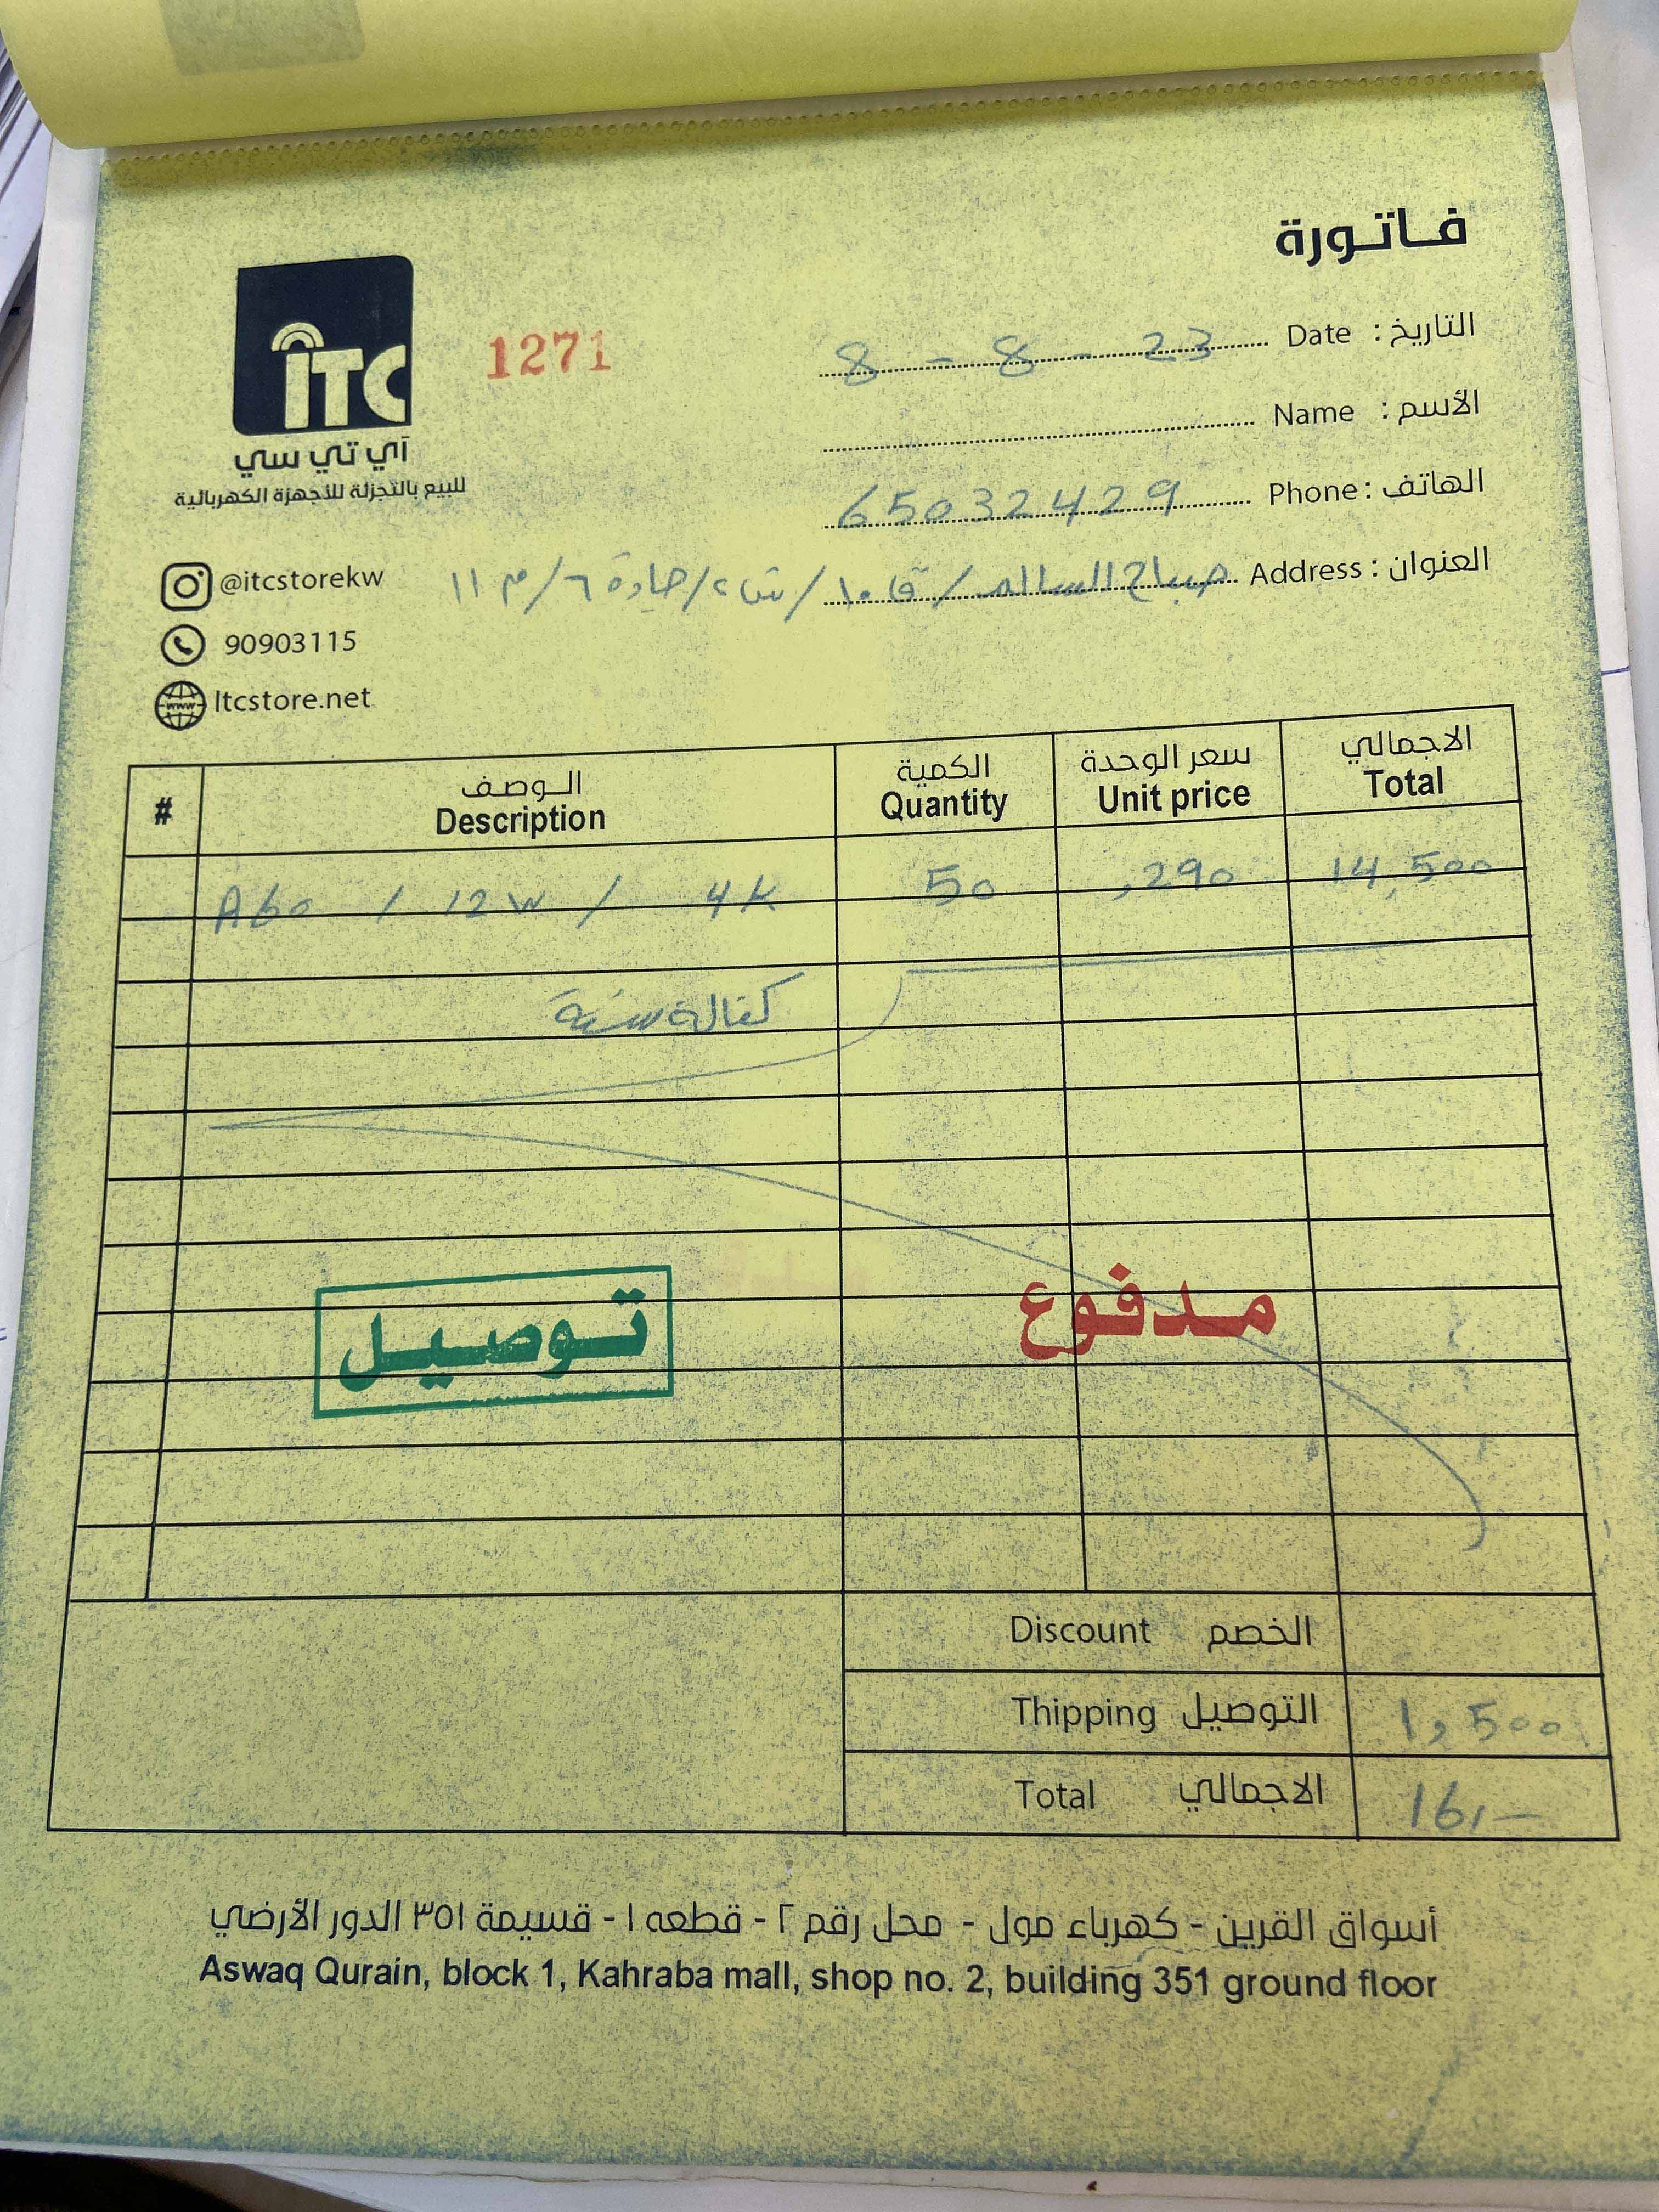 فاتورة
ITC
آي تي سي
للبيع بالتجزئة للأجهزة الكهربائية
1271
التاريخ : Date 8 - 8 - 23
الأسم : Name
الهاتف : Phone 65032429
العنوان : Address صباح السالم / ق ١٠ / ش ٢ / جادة ٦ / م ١١
@itcstorekw
90903115
www
Itcstore.net
# الوصف الكمية سعر الوحدة الاجمالي
Description Quantity Unit price Total
A60 / 12W / 4K 50 ,290 14,500
كفالة سنة
توصيل
مدفوع
Discount الخصم
Thipping التوصيل 1,500
Total الاجمالي 16,—
أسواق القرين - كهرباء مول - محل رقم ٢ - قطعه ١ - قسيمة ٣٥١ الدور الأرضي
Aswaq Qurain, block 1, Kahraba mall, shop no. 2, building 351 ground floor